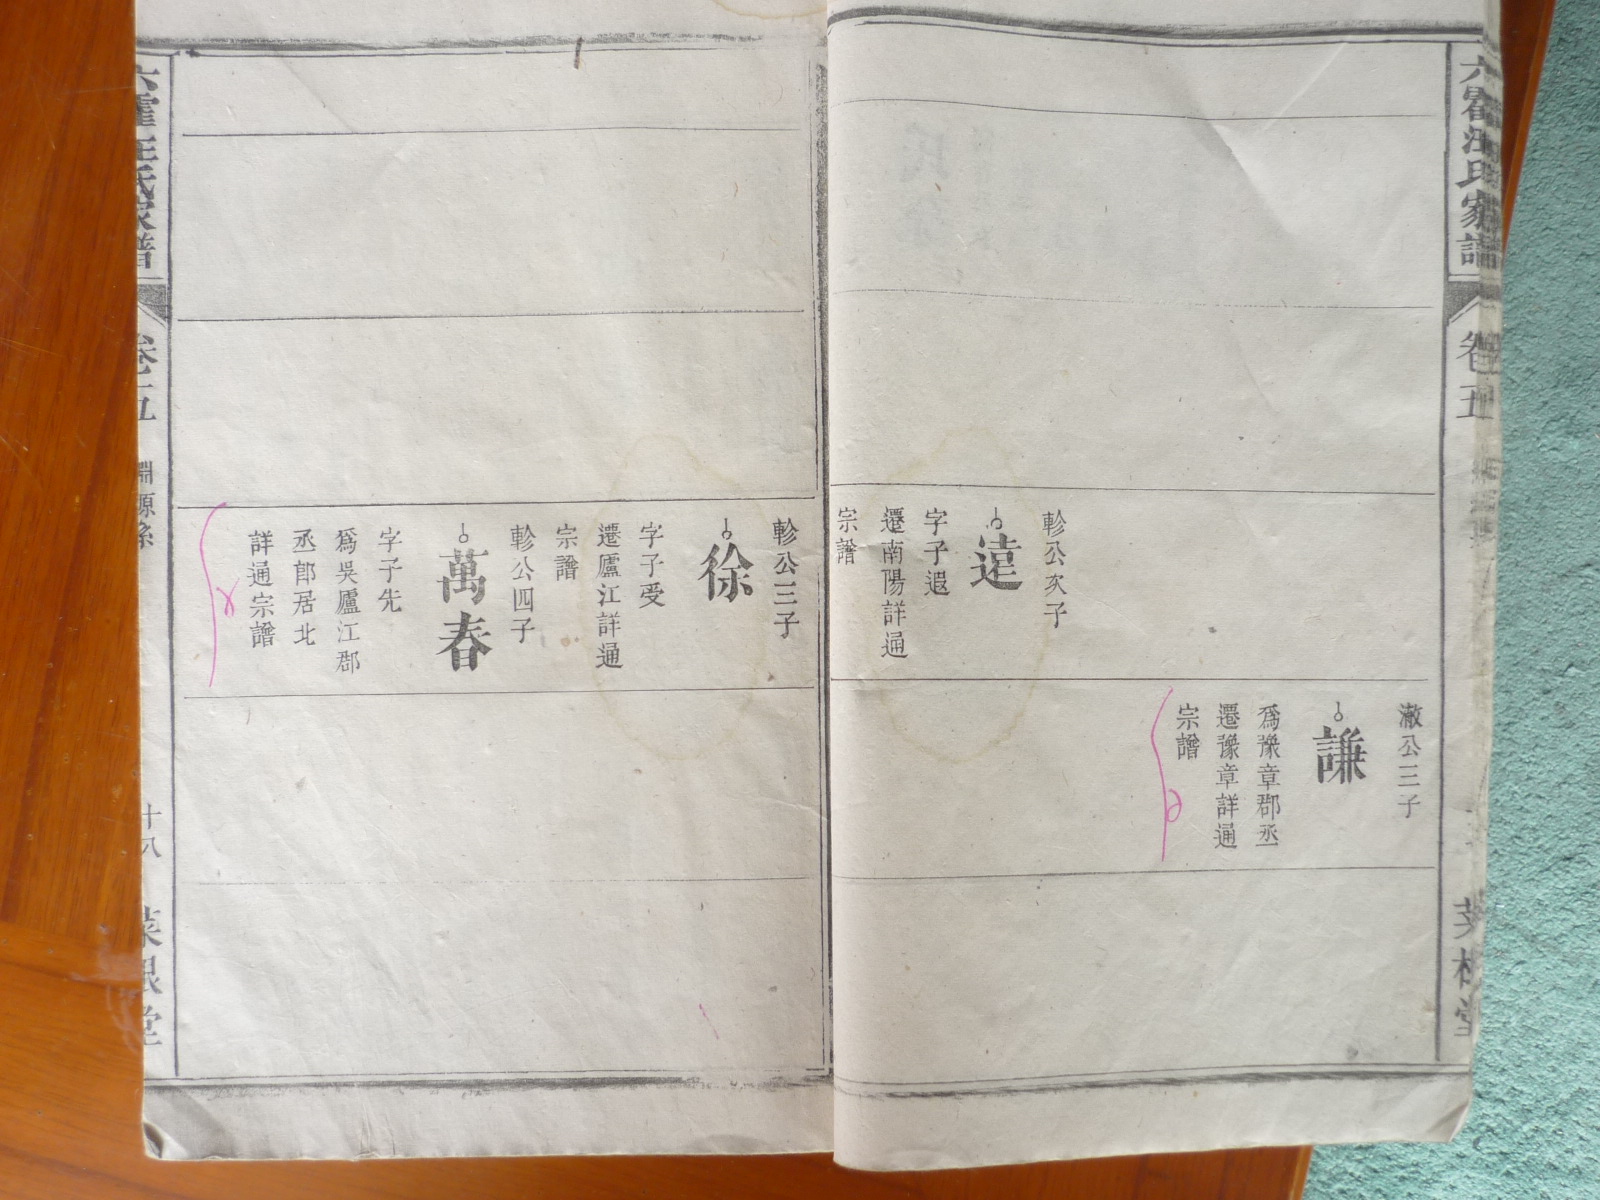 六霍汪氏家譜
卷五
澈公三子
謙
爲豫章郡丞
遷豫章詳通
宗譜
軫公次子
遠
字子遐
遷南陽詳通
宗譜
軫公三子
徐
字子受
遷廬江詳通
宗譜
軫公四子
萬春
字子先
爲吳廬江郡
丞郎居北
詳通宗譜
六霍汪氏家譜
卷五
淵源系
十八
菜根堂